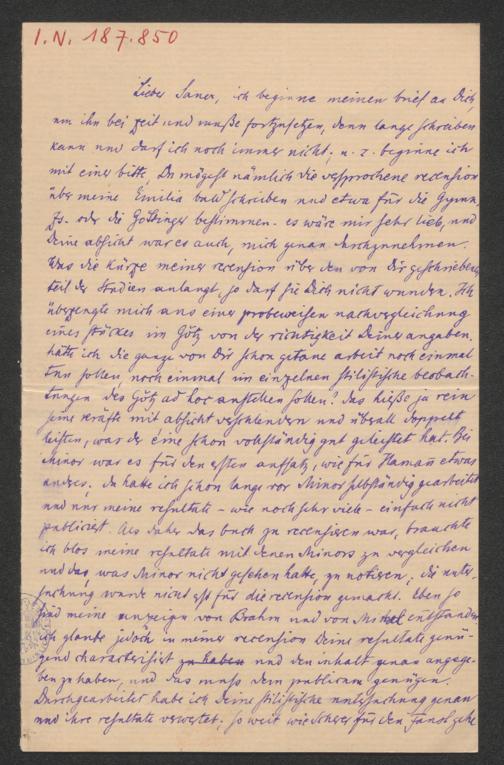 I.N. 187.850
Lieber Sauer, ich beginne meinen brief an Dich,
um ihn bei zeit und muße fortzusetzen, denn lange schreiben
kann und darf ich noch immer nicht; u. z. beginne ich
mit einer bitte, Du mögest nämlich die versprochene recension
über meine Emilia bald schreiben und etwa für die Gymn.
Zs. oder die Göttinger bestimmen. es wäre mir sehr lieb, und
Deine absicht war es auch, mich genau durchzunehmen.
Was die kürze meiner recension über den von Dir geschriebenen
teil der Studien anlangt, so darf sie Dich nicht wundern. Ich
überzeugte mich aus einer probeweisen nachvergleichung
eines stückes im Götz von der richtigkeit Deiner angaben.
hätte ich die ganze von Dir schon getane arbeit noch einmal
tun sollen, noch einmal im einzelnen stilistische beobach-
tungen des Götz ad hoc anstellen sollen? das hieße ja rein
seine kräfte mit absicht verschleudern und überall doppelt
leisten, was der eine schon vollständig gut geleistet hat. Bei
Minor war es für den ersten aufsatz, wie für Hamann etwas
anders; da hatte ich schon lange vor Minor selbständig gearbeitet
und nur meine resultate – wie noch sehr viele – einfach nicht
publiciert. Als daher das buch zu recensieren war, brauchte
ich blos meine resultate mit denen Minors zu vergleichen
und das, was Minor nicht gesehen hatte, zu notieren; die unter-
suchung wurde nicht erst für die recension gemacht. Eben so
sind meine anzeigen von Brahm und von entstanden.
ich glaube jedoch in meiner recension Deine resultate genü-
gend characterisiert zu haben und den inhalt genau angege-
ben zu haben, und das muss dem publicum genügen.
Durchgearbeitet habe ich Deine stilistische untersuchung genau
und ihre resultate verwertet; so weit wie Scherer für den Faust gehe